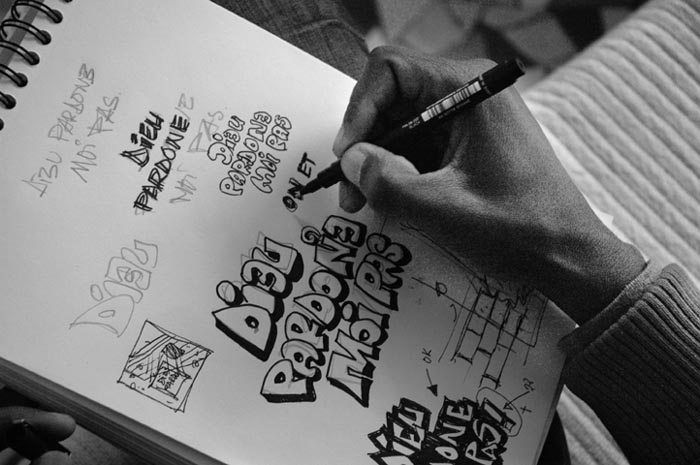 DIEU PARDONE
MOI PAS.
DIEU
PARDONE
MOI PAS.
DIEU
PARDONE
MOI PAS
ON ET
DIEU
PARDONE
MOI PAS
DIEU
OK
DIEU
PAS!